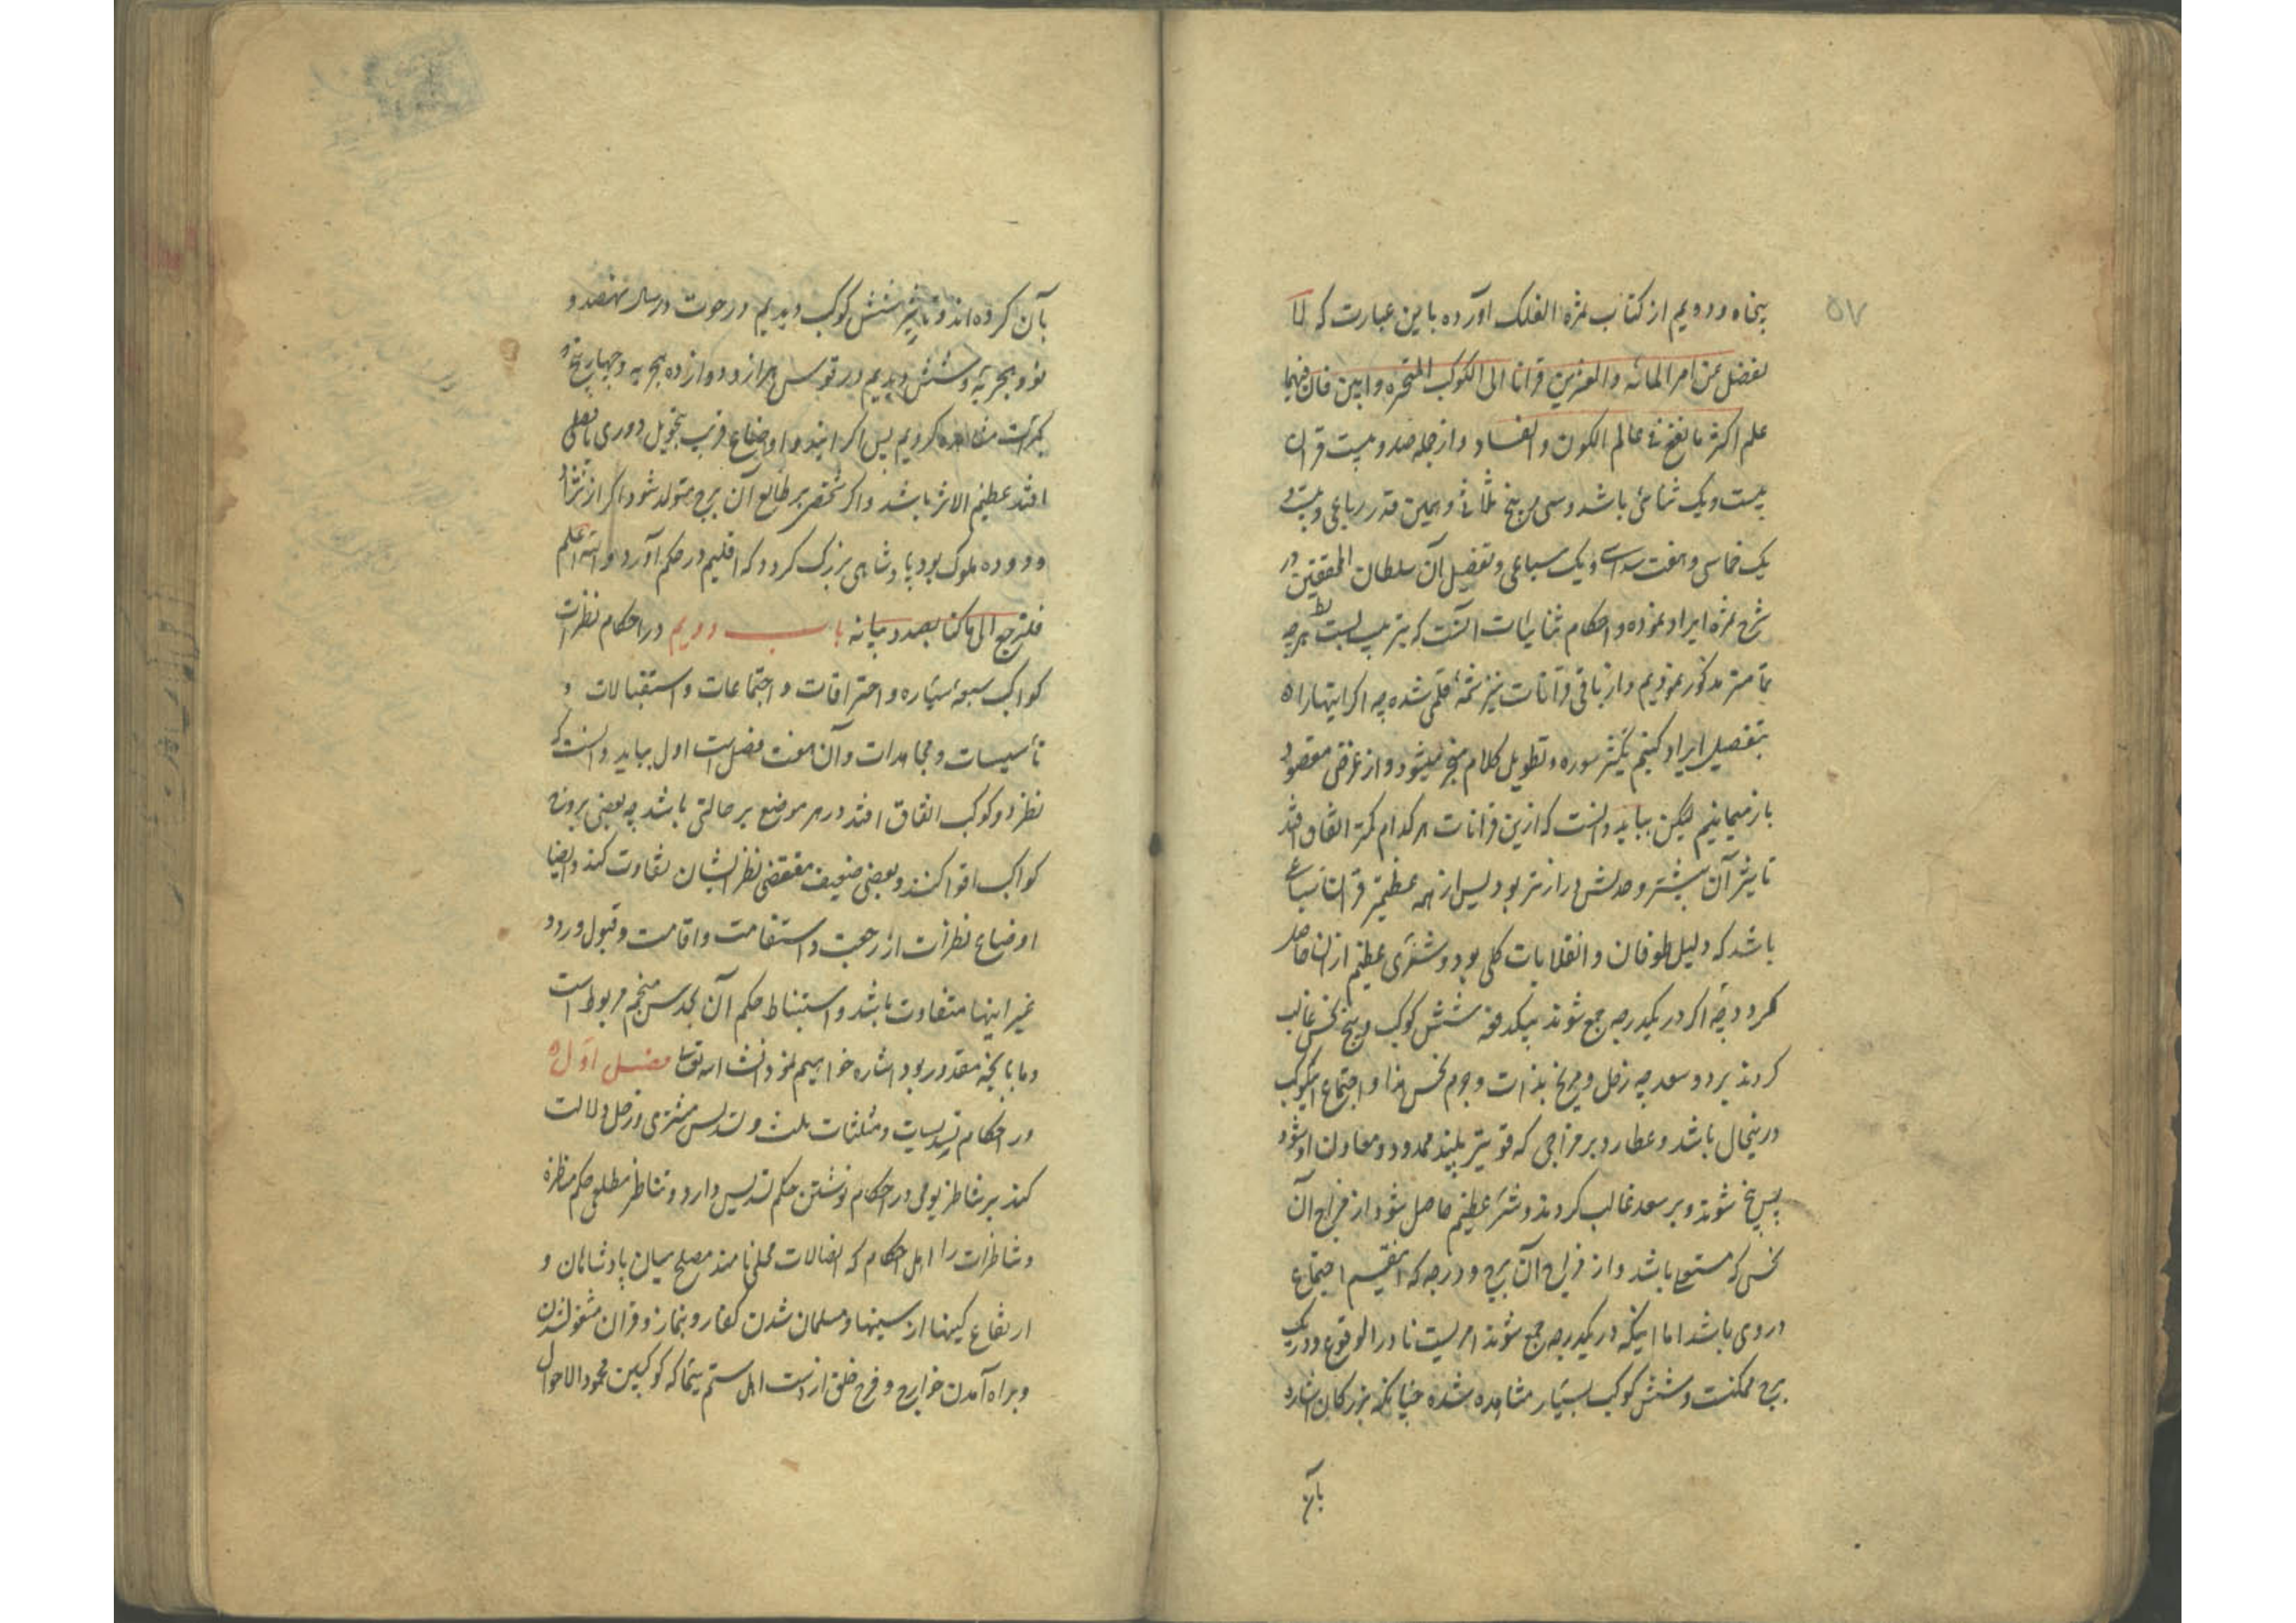 ۵۷
پنجاه و دویم از کتاب ثمرة الفلک آورده باین عبارت که لا
تغفل عن امر المائه والعشرین قرانا الی الکوکب المتحیزه وابین فان فیها
علم اکثر ما یقع فی عالم الکون والفساد و از جمله صد و بیست قران
بیست و یک ثنائی باشد و سی و پنج ثلاثی و همین قدر رباعی و بیست و
یک خماسی و هفت سداسی و یک سباعی و تفصیل آن سلطان المحققین در
شرح ثمره ایراد نموده و احکام ثنائیات آنست که بترتیب بسبت هر چه
تمامتر مذکور نمودیم و از باقی قرانات نیز شمه قلمی شده چه اگر اینها را
بتفصیل ایراد کنیم بتطویل کلام منجر میشود و از غرض مقصود
باز میمانیم لیکن بباید دانست که ازین قرانات هر کدام کمتر اتفاق افتد
تاثیر آن بیشتر و مدتش درازتر بود پس از همه عظیمتر قران سباعی
باشد که دلیل طوفان و انقلابات کلی بود و شری عظیم از آن حاصل
گردد چه اگر در یکدرجه جمع شوند بیکدفعه شش کوکب و پنج نحس غالب
گردند بر دو سعد چه زحل و مریخ بذات و جرم نحس‌اند و اجتماع کوکب
درینحال باشد و عطارد بر مزاجی که قویتر بیند ممد و معاون او شود
پس پنج شوند و بر سعد غالب گردند و شر عظیم حاصل شود از مزاج آن
نحس که مستعلی باشد و از مزاج آن برج و درجه که اجتماع
در وی باشد اما اینکه در یکدرجه جمع شوند امریست نادر الوقوع و در یک
برج ممکنست و شش کوکب بسیار مشاهده شده چنانکه بزرگان اشاره
بآن
بآن کرده‌اند و تاثیر شش کوکب دیدیم در حوت در سال نهصد و
نود و هجریه و شش دیدیم در قوس هزار و دوازده هجریه و چهار و پنج
بکرات مشاهده کردیم پس اگر اینها و اوضاع قریب بتحویل دوری یا فصلی
افتد عظیم الاثر باشد و اگر شخصی بر طالع آن برج متولد شود اگر از نژاد
و دوده ملوک بود پادشاهی بزرگ گردد که اقلیم در حکم آورد والله اعلم
فلنرجع الی ما کنا بصدد بیانه باب دویم در احکام نظرات
کواکب سبعه سیاره و احتراقات و اجتماعات و استقبالات و
تأسیسات و مجاسدات و آن هفت فصلست اول بباید دانست که
نظر دو کوکب اتفاق افتد در هر موضع بر حالتی باشد چه بعضی بروند
کواکب اقوا کنند و بعضی ضعیف مقتضی نظر ایشان تفاوت کند و ایضا
اوضاع نظرات از رجعت و استقامت و اقامت و قبول و رد و
غیر اینها متفاوت باشد و استنباط حکم آن بحدس منجم مربوط است
و ما بآنچه مقدور بود اشاره خواهیم نمود انشاء الله تعالی فصل اول
در احکام تسدیسات و مثلثات تثلیث و تسدیس مشتری و زحل دلالت
کند بر تناظر یومی در احکام نوشتن حکم تسدیس دارد و تناظر مطلعی حکم مناظره
و تناظرات را اهل احکام که اتصالات محلی نامند مصلح میان پادشاهان و
ارتفاع کینها از سینها و مسلمان شدن کفار و بنماز و قران مشغول شدن
و براه آمدن خوارج و فرح خلق از دست اهل ستم سیما که کوکبین محمود الاحوال